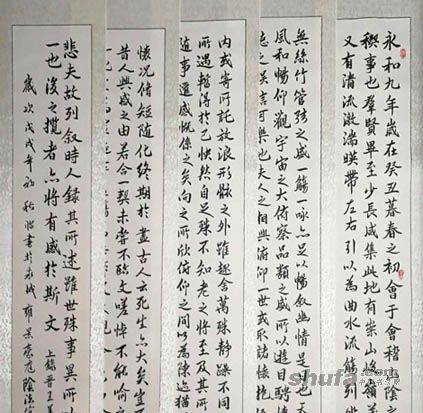 永和九年歲在癸丑暮春之初會于會稽山陰
稧事也羣賢畢至少長咸集此地有崇山峻領
又有清流激湍暎帶左右引以為曲水流觴列
無絲竹管弦之盛一觴一詠亦足以暢叙幽情是日也天
風和暢仰觀宇宙之大俯察品類之盛所以遊目騁
可樂也夫人之相與俯仰一世或取諸懷抱
內或寄所託放浪形骸之外雖趣舍萬殊靜躁不同
所遇暫得於己快然自足殊不知老之將至及其所
隨事遷感慨係之矣向之所欣俯仰之間以為陳迹猶
懷況脩短隨化終期於盡古人云死生亦大矣豈
昔人興感之由若合一契未嘗不臨文嗟悼不能喻之
悲夫故列叙時人錄其所述雖世殊事異所以
一也後之攬者亦將有感於斯文
上錄晉王
歲次戊戌年初秋
shufa